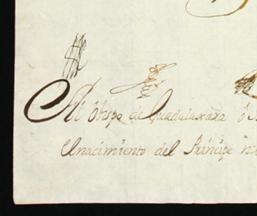 El Obispo de Guadalaxara
El nacimiento del Principe